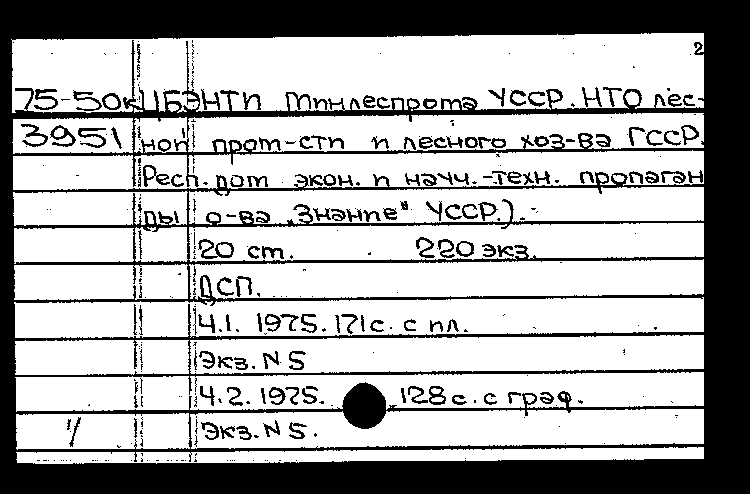 2
75-50к ЦБЭНТИ Минлеспрома УССР. НТО лес-
3951 ной пром-сти и лесного хоз-ва ГССР.
Респ. дом экон. и науч.-техн. пропаган
ды о-ва „Знание" УССР.).-
20 см. 220 экз.
ДСП.
Ч.1. 1975. 171 с. с ил.
Экз. N 5
Ч.2. 1975. 128 с. с граф.
Экз. N 5.